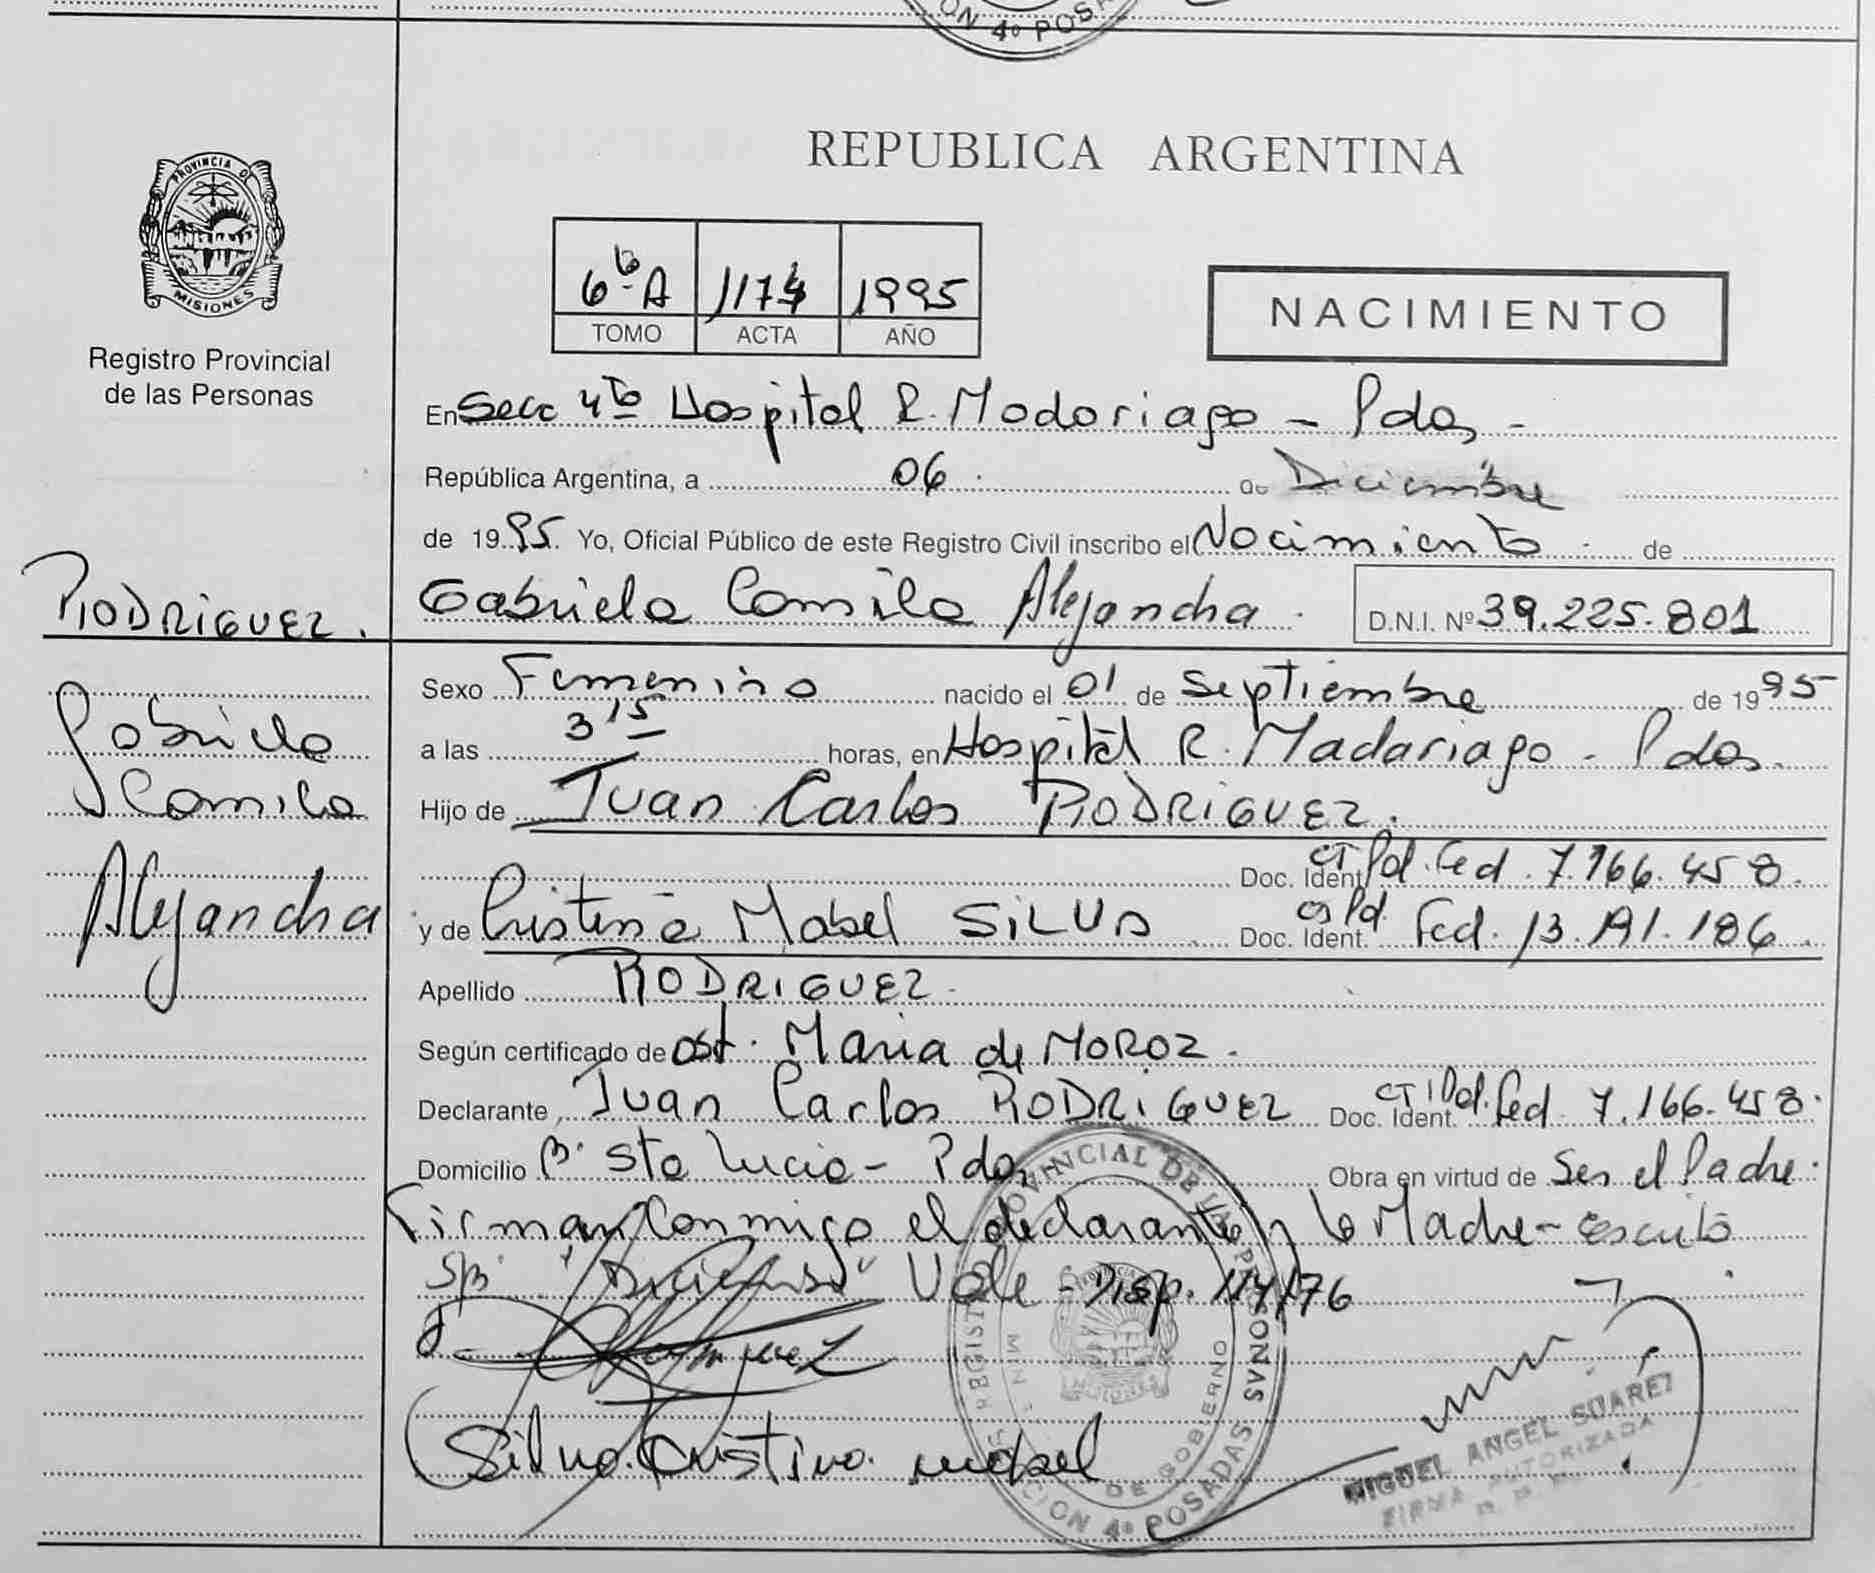 ON 4º POSA
REPUBLICA ARGENTINA
PROVINCIA DE
MISIONES
Registro Provincial
de las Personas
6toA 1174 1995
TOMO ACTA AÑO
NACIMIENTO
En Secc 4ta Hospital R. Madariaga - Pdas -
República Argentina, a 06 de Diciembre
de 1995. Yo, Oficial Público de este Registro Civil inscribo el Nacimiento de
RODRIGUEZ.
Gabriela Camila Alejandra. D.N.I. Nº 39.225.801
Gabriela
Camila
Alejandra
Sexo Femenino nacido el 01 de Septiembre de 1995
a las 3 15 horas, en Hospital R. Madariaga - Pdas.
Hijo de Juan Carlos RODRIGUEZ.
Doc. Ident. CI Pol. Fed. 7.166.458.
y de Cristina Mabel SILVA Doc. Ident. Pol. Fed. 13.191.186.
Apellido RODRIGUEZ.
Según certificado de Obst. Maria de MOROZ.
Declarante Juan Carlos RODRIGUEZ Doc. Ident. CI Pol. Fed 7.166.458.
Domicilio Bº Sta Lucia - Pdas. Obra en virtud de Ser el Padre.
Firman conmigo el declarante y la Madre - Escrito
S/B "Diciembre" Vale - Disp. 114/76
Silva Cristina Mabel
REGISTRO PROVINCIAL DE LAS PERSONAS
SECCION 4º POSADAS
MIN. DE GOBIERNO
MIGUEL ANGEL SUAREZ
FIRMA AUTORIZADA